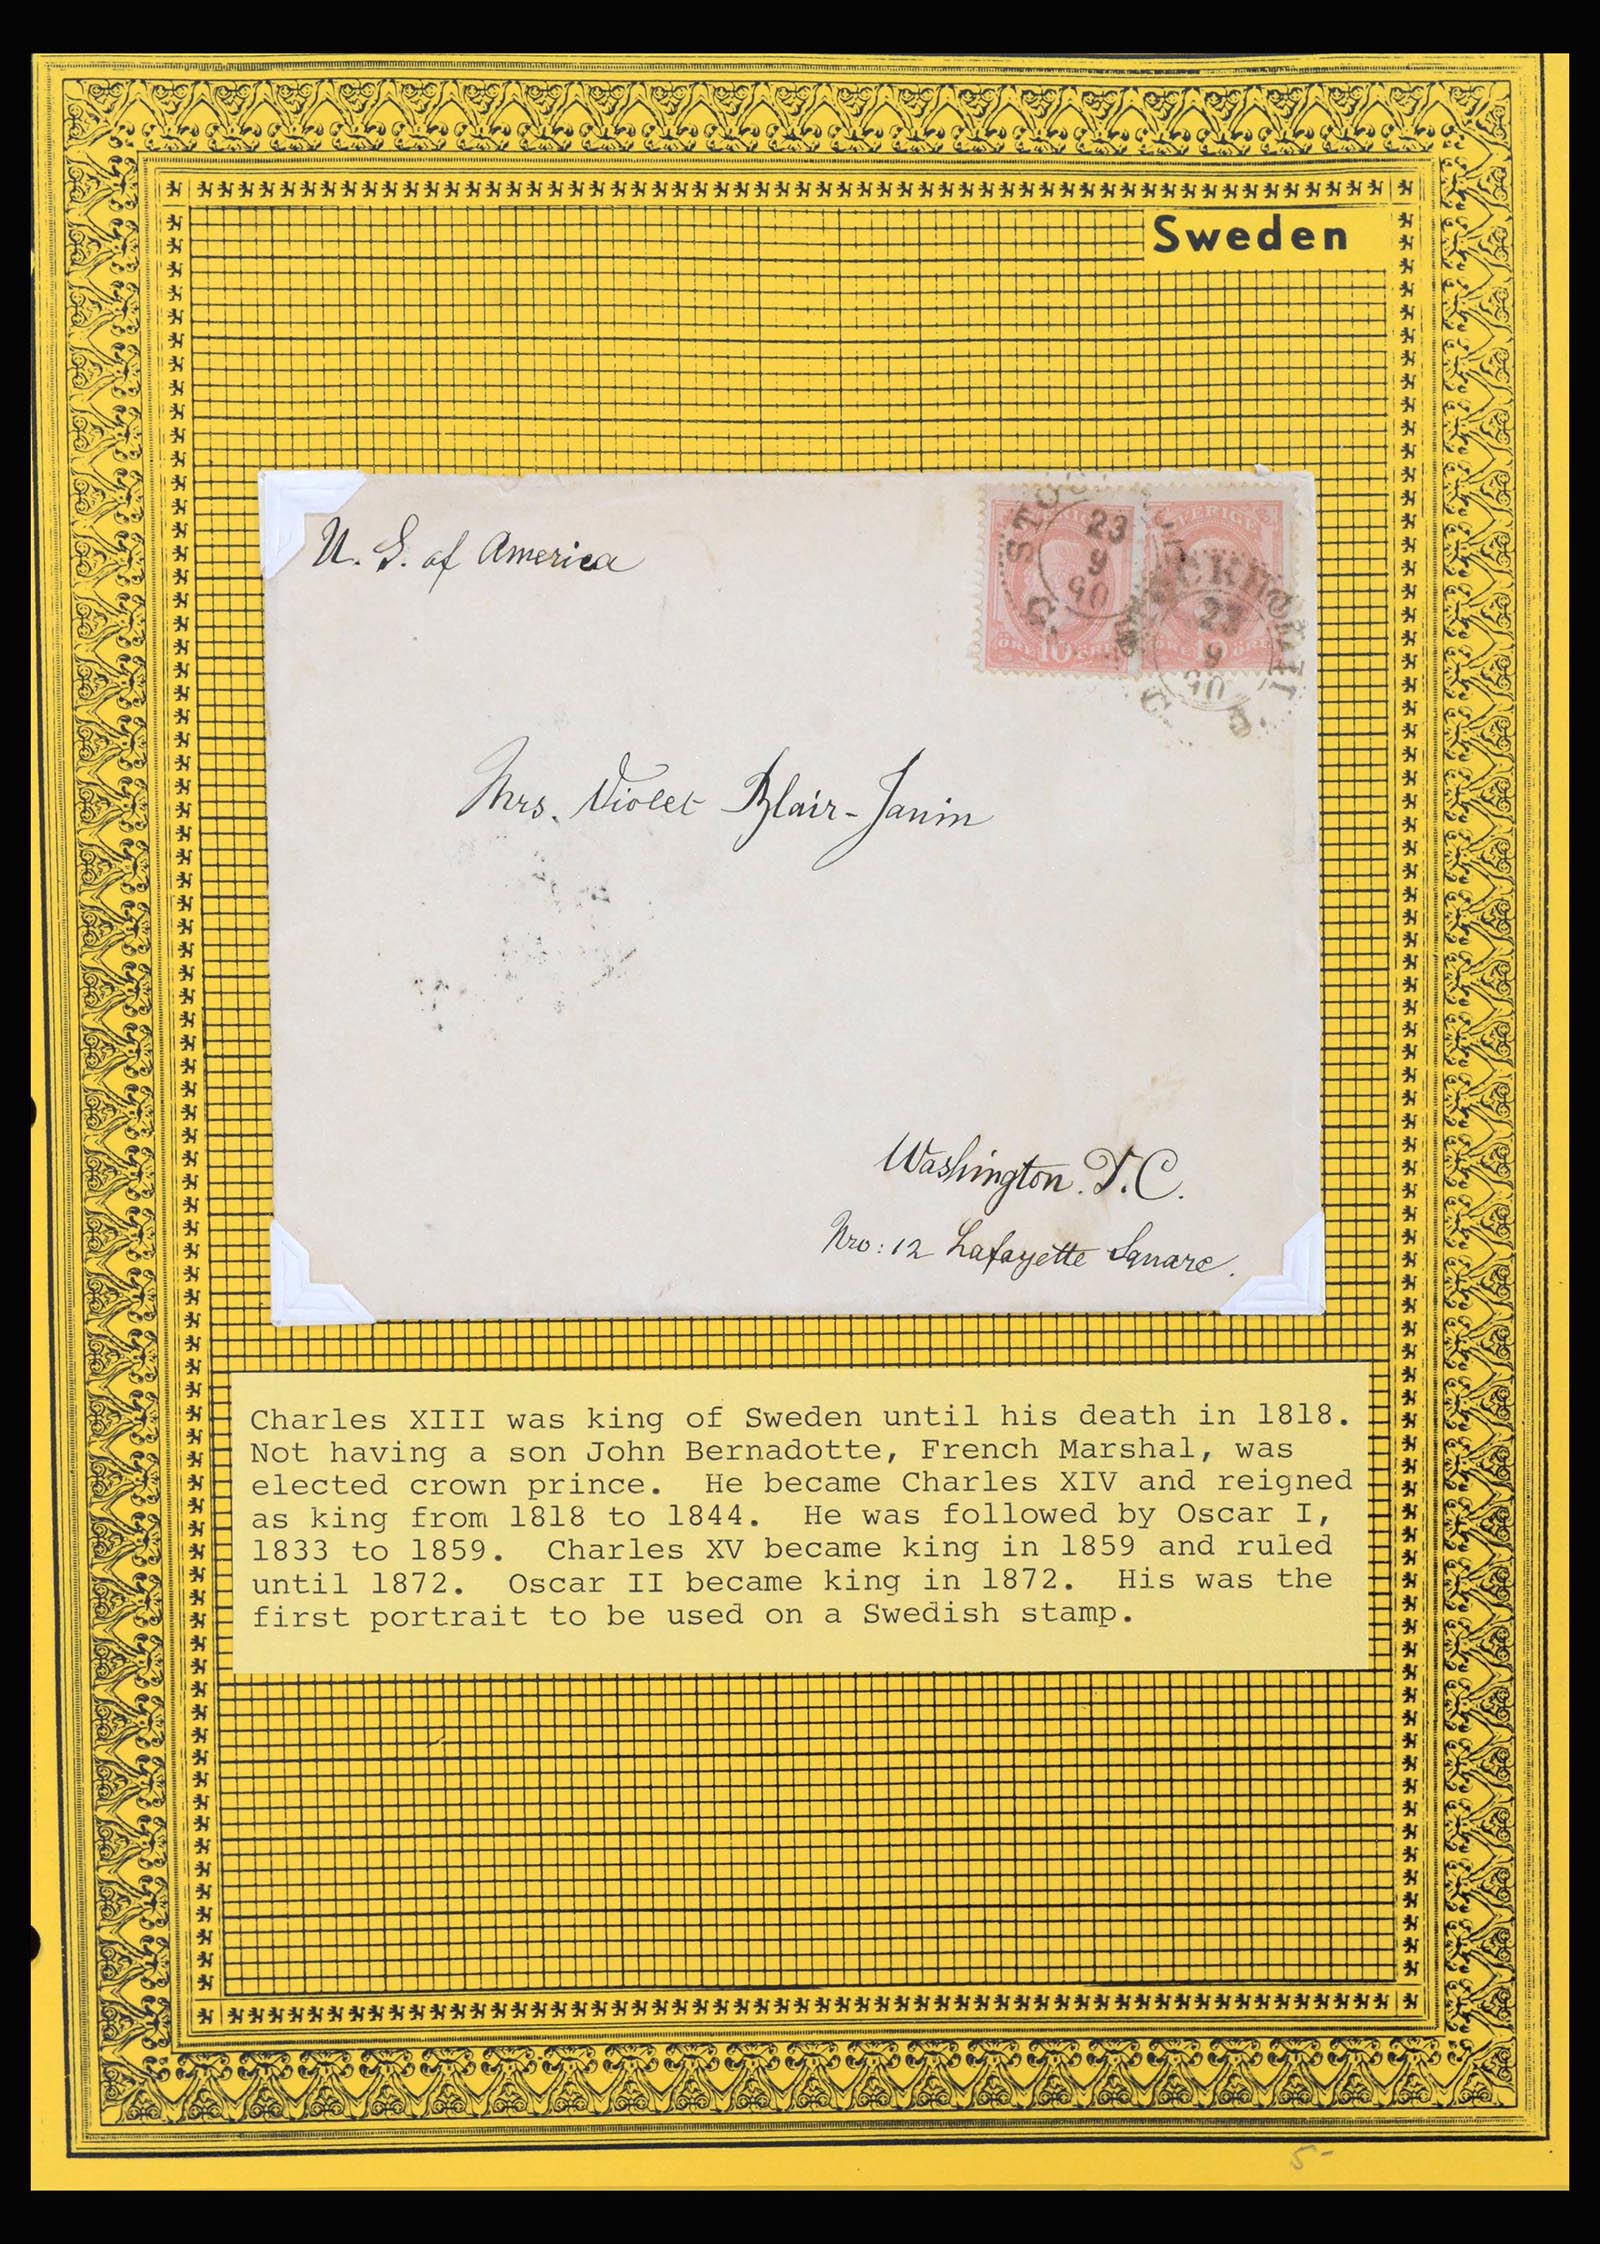 Sweden
U. S. of America
STOCKHOLM
23
9
90
SVERIGE
ÖRE 10 ÖRE
STOCKHOLM
23
9
90
ÖRE 10 ÖRE
Mrs. Violet Blair-Janin
Washington. D.C.
Nro: 12 Lafayette Square.
Charles XIII was king of Sweden until his death in 1818.
Not having a son John Bernadotte, French Marshal, was
elected crown prince. He became Charles XIV and reigned
as king from 1818 to 1844. He was followed by Oscar I,
1833 to 1859. Charles XV became king in 1859 and ruled
until 1872. Oscar II became king in 1872. His was the
first portrait to be used on a Swedish stamp.
5-